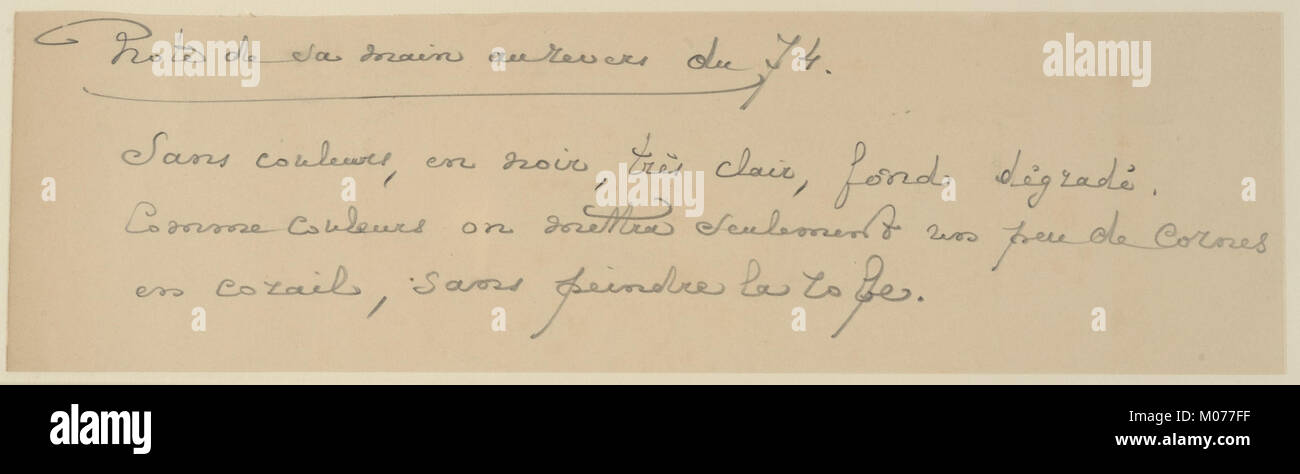 Note de sa main au revers du 74.
alamy
alamy
Sans couleurs, en noir, très clair, fond dégradé.
a a a a a
alamy
Comme couleurs on mettra seulement un peu de Cornes
en corail, sans peindre la robe.
a a a a
alamy
Image ID: M077FF
www.alamy.com